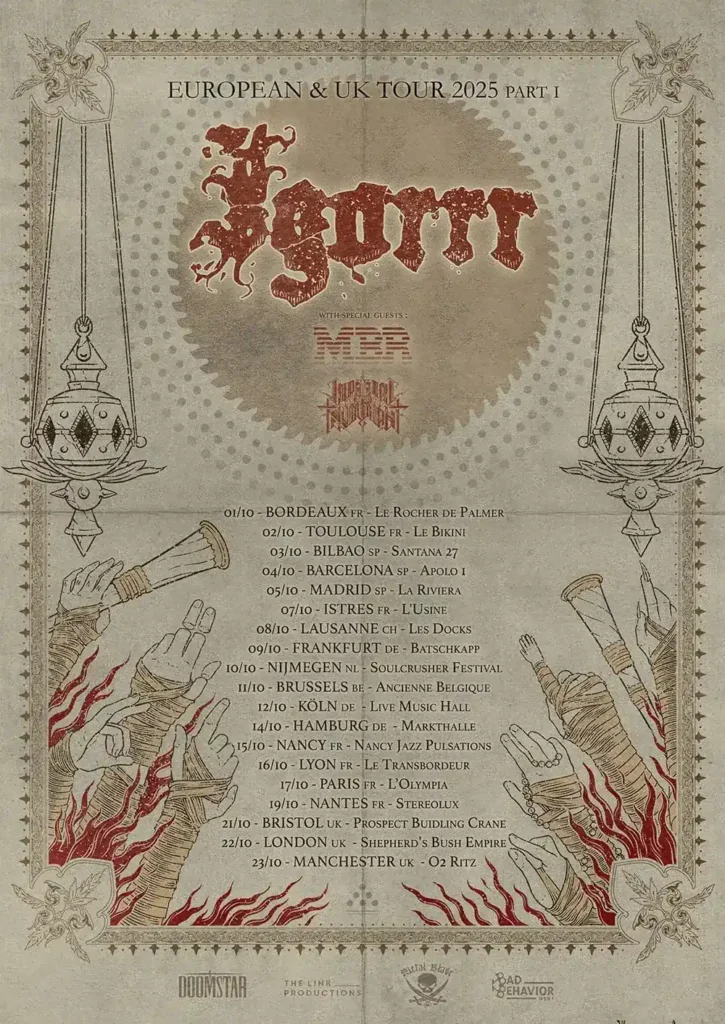 EUROPEAN & UK TOUR 2025 PART I
Igorrr
WITH SPECIAL GUESTS :
MBR
IMPERIAL TRIUMPHANT
01/10 - BORDEAUX FR - LE ROCHER DE PALMER
02/10 - TOULOUSE FR - LE BIKINI
03/10 - BILBAO SP - SANTANA 27
04/10 - BARCELONA SP - APOLO 1
05/10 - MADRID SP - LA RIVIERA
07/10 - ISTRES FR - L'USINE
08/10 - LAUSANNE CH - LES DOCKS
09/10 - FRANKFURT DE - BATSCHKAPP
10/10 - NIJMEGEN NL - SOULCRUSHER FESTIVAL
11/10 - BRUSSELS BE - ANCIENNE BELGIQUE
12/10 - KÖLN DE - LIVE MUSIC HALL
14/10 - HAMBURG DE - MARKTHALLE
15/10 - NANCY FR - NANCY JAZZ PULSATIONS
16/10 - LYON FR - LE TRANSBORDEUR
17/10 - PARIS FR - L'OLYMPIA
19/10 - NANTES FR - STEREOLUX
21/10 - BRISTOL UK - PROSPECT BUIDLING CRANE
22/10 - LONDON UK - SHEPHERD'S BUSH EMPIRE
23/10 - MANCHESTER UK - O2 RITZ
DOOMSTAR
THE LINK PRODUCTIONS
Metal Blade
BAD BEHAVIOR